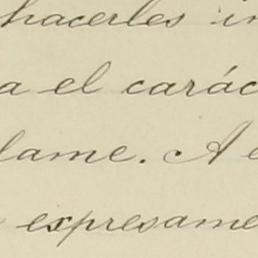 hacerles in
a el carác
lame. A e
expresame